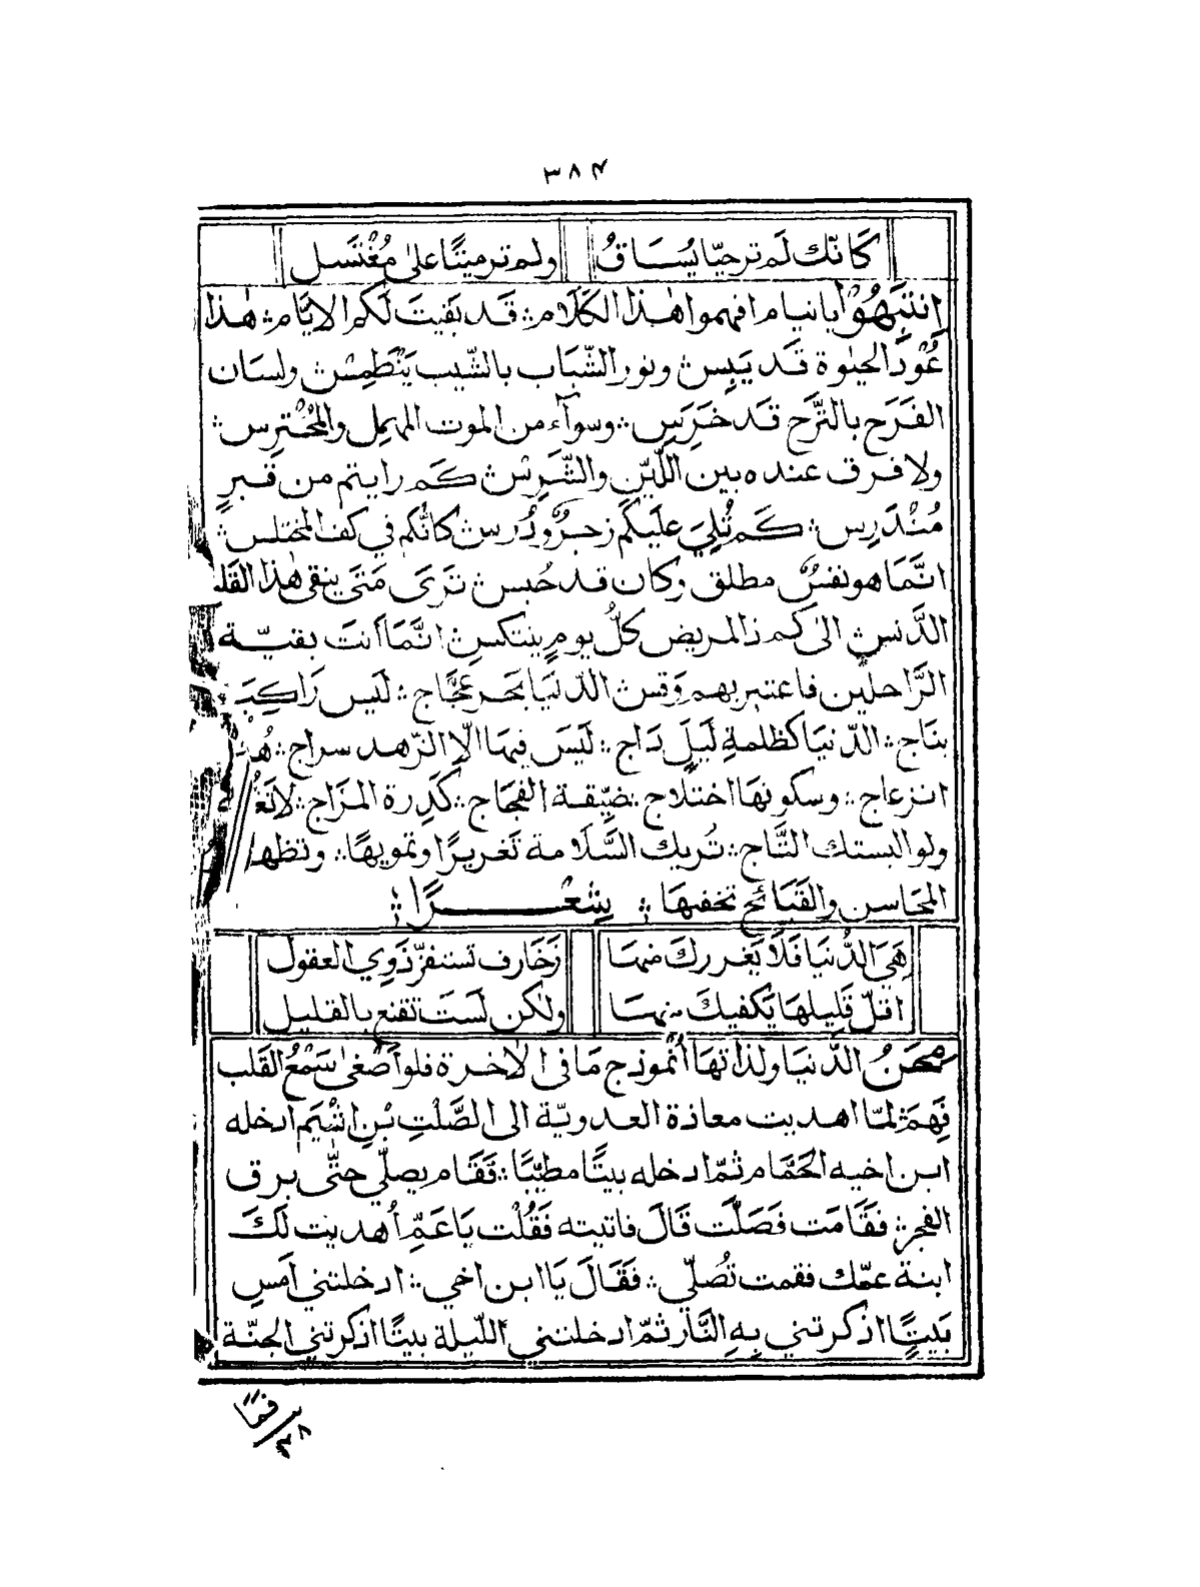 ٣٨٤
كَانّك لَم ترحيّا يُسَاقُ ولم ترميتًا على مُغْتَسَل
اِنتَبِهُوْا يا نيام افهموا هٰذا الكَلَام قَد بَقيتَ لَكم الايّام هٰذا
عُوْدُ الحيٰوة قَد يَبِسْ ونور الشّبَاب بالشّيب يَنْطَمِسْ ولسَان
الفَرَح بالتَّرَح قَد خَرَس وسوآء من الموت المهمل والمُحْتَرِس
ولا فرق عنده بين اللّيّن والشّرِسْ كَم رايتم من قَبرٍ
مُنْدَرِس كَم تُلِيَ عليكم زجرٌ ودُرس كانّكم في كف المختلس
انَّمَا هو نفسٌ مطلق وكان قد حُبس تَرَى مَتَى ينقى هٰذا القَلب
الدَّنس الىٰ كم ذا المريض كلُّ يومٍ ينتكس انّمَا انتَ بقيّة
الرَّاحلين فاعتبر بهم وَقس الدّنيَا بَحر عجَّاج لَيس رَاكِبَ
بنَاج الدّنيَا كظلمةِ لَيلٍ دَاج لَيسَ فيهَا الّا الزّهد سراج
انزعاج وسكونهَا اختلاج ضيّقة الفجَاج كَدِرة المزَاج لا تَغُ
ولو البستك التَّاج تُريك السَّلامة تَغريرًا وتمويهًا وتظهر
المحَاسن والقَبَائح تخفيهَا شعْرًا
هيَ الدُّنيَا فَلَا يَغررك منهَا زَخَارف تستفزّ ذَوِي العقول
اقلّ قَليلهَا يَكفيكَ منهَا ولٰكن لَستَ تقنع بالقليل
مِحَنُ الدَّنيَا ولذاتهَا أنموذج مَا فى الاٰخرة فلو اَصْغىٰ سَمْعُ القَلب
فَهِمَ لمّا اهديت معاذة العدويّة الى الصَّلْتِ بْنِ اشْيَم ادخله
ابن اخيه الحَمَّام ثمّ ادخله بيتًا مطيّبًا فَقَام يصلّي حتّى برق
الفجر فقَامَت فَصَلّت قَالَ فاتيته فَقُلْت يَا عَمّ اُهديت لَكَ
ابنة عمّك فقمت تُصَلّي فَقَالَ يَا ابن اخي ادخلتني اَمس
بَيتًا اذكرتني بِهِ النَّار ثمّ ادخلتني الليلة بيتًا اذكرتني الجنّة